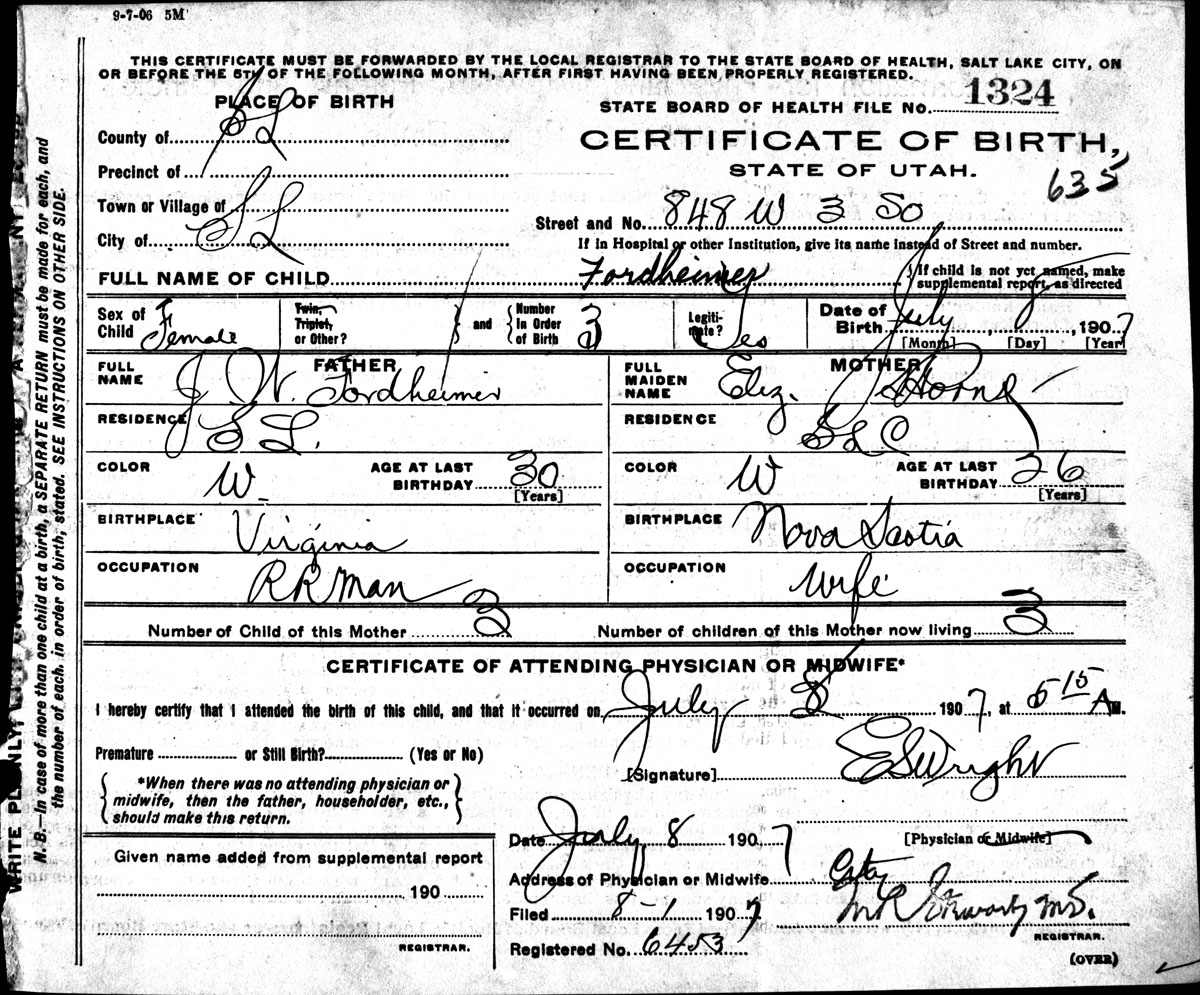 9-7-06 5M
THIS CERTIFICATE MUST BE FORWARDED BY THE LOCAL REGISTRAR TO THE STATE BOARD OF HEALTH, SALT LAKE CITY, ON
OR BEFORE THE 5TH OF THE FOLLOWING MONTH, AFTER FIRST HAVING BEEN PROPERLY REGISTERED.
PLACE OF BIRTH
STATE BOARD OF HEALTH FILE No. 1324
County of S L
CERTIFICATE OF BIRTH,
Precinct of
STATE OF UTAH.
635
Town or Village of
Street and No. 848 W 3 So
City of S L
If in Hospital or other Institution, give its name instead of Street and number.
FULL NAME OF CHILD Fordheimer
{If child is not yet named, make
supplemental report, as directed
Sex of Child Female
Twin, Triplet, or Other?
and
Number in Order of Birth 3
Legitimate? Yes
Date of Birth July 8, 1907
[Month] [Day] [Year]
FATHER
FULL NAME J W. Fordheimer
MOTHER
FULL MAIDEN NAME Eliz. J Horne
RESIDENCE S L.
RESIDENCE S L C
COLOR W
AGE AT LAST BIRTHDAY 30
[Years]
COLOR W
AGE AT LAST BIRTHDAY 26
[Years]
BIRTHPLACE Virginia
BIRTHPLACE Nova Scotia
OCCUPATION RR Man
OCCUPATION Wife
Number of Child of this Mother 3
Number of children of this Mother now living 3
CERTIFICATE OF ATTENDING PHYSICIAN OR MIDWIFE*
I hereby certify that I attended the birth of this child, and that it occurred on July 8 1907, at 5 15 A M.
Premature or Still Birth? (Yes or No)
[Signature] E S Wright
*When there was no attending physician or
midwife, then the father, householder, etc.,
should make this return.
Date July 8 1907
[Physician or Midwife]
Given name added from supplemental report
190
REGISTRAR.
Address of Physician or Midwife City
Filed 8-1 1907
M.D.
REGISTRAR.
Registered No. 6453
(OVER)
N.B.—In case of more than one child at a birth, a SEPARATE RETURN must be made for each, and
the number of each, in order of birth, stated. SEE INSTRUCTIONS ON OTHER SIDE.
WRITE PLAINLY